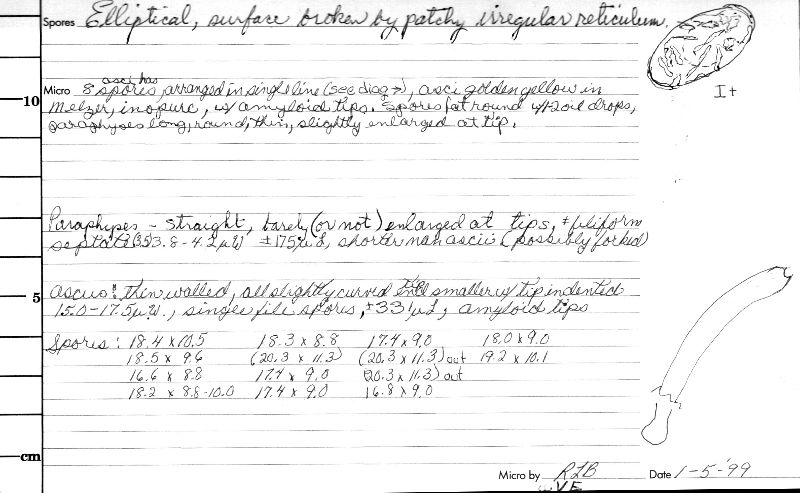 Spores Elliptical, surface broken by patchy irregular reticulum.
asci has
Micro 8 spores, arranged in single line (see diag →), asci golden yellow in
10
Melzer, inoperc, w/ amyloid tips. Spores fat round w/1-2 oil drops,
paraphyses long, round, thin, slightly enlarged at tip.
I+
Paraphyses - straight, barely (or not) enlarged at tips, ± filiform
septate 3.8-4.2µW ±175µL, shorter than ascii (possibly forked)
Ascus: thin walled, all slightly curved smaller w/ tip indented
5
15.0-17.5µW., single file spores, ±331µL, amyloid tips
Spores: 18.4 x 10.5 18.3 x 8.8 17.4 x 9.0 18.0 x 9.0
18.5 x 9.6 (20.3 x 11.3) (20.3 x 11.3) out 19.2 x 10.1
16.6 x 8.8 17.4 x 9.0 (20.3 x 11.3) out
18.2 x 8.8-10.0 17.4 x 9.0 16.8 x 9.0
cm
Micro by RLB Date 1-5-'99
VE